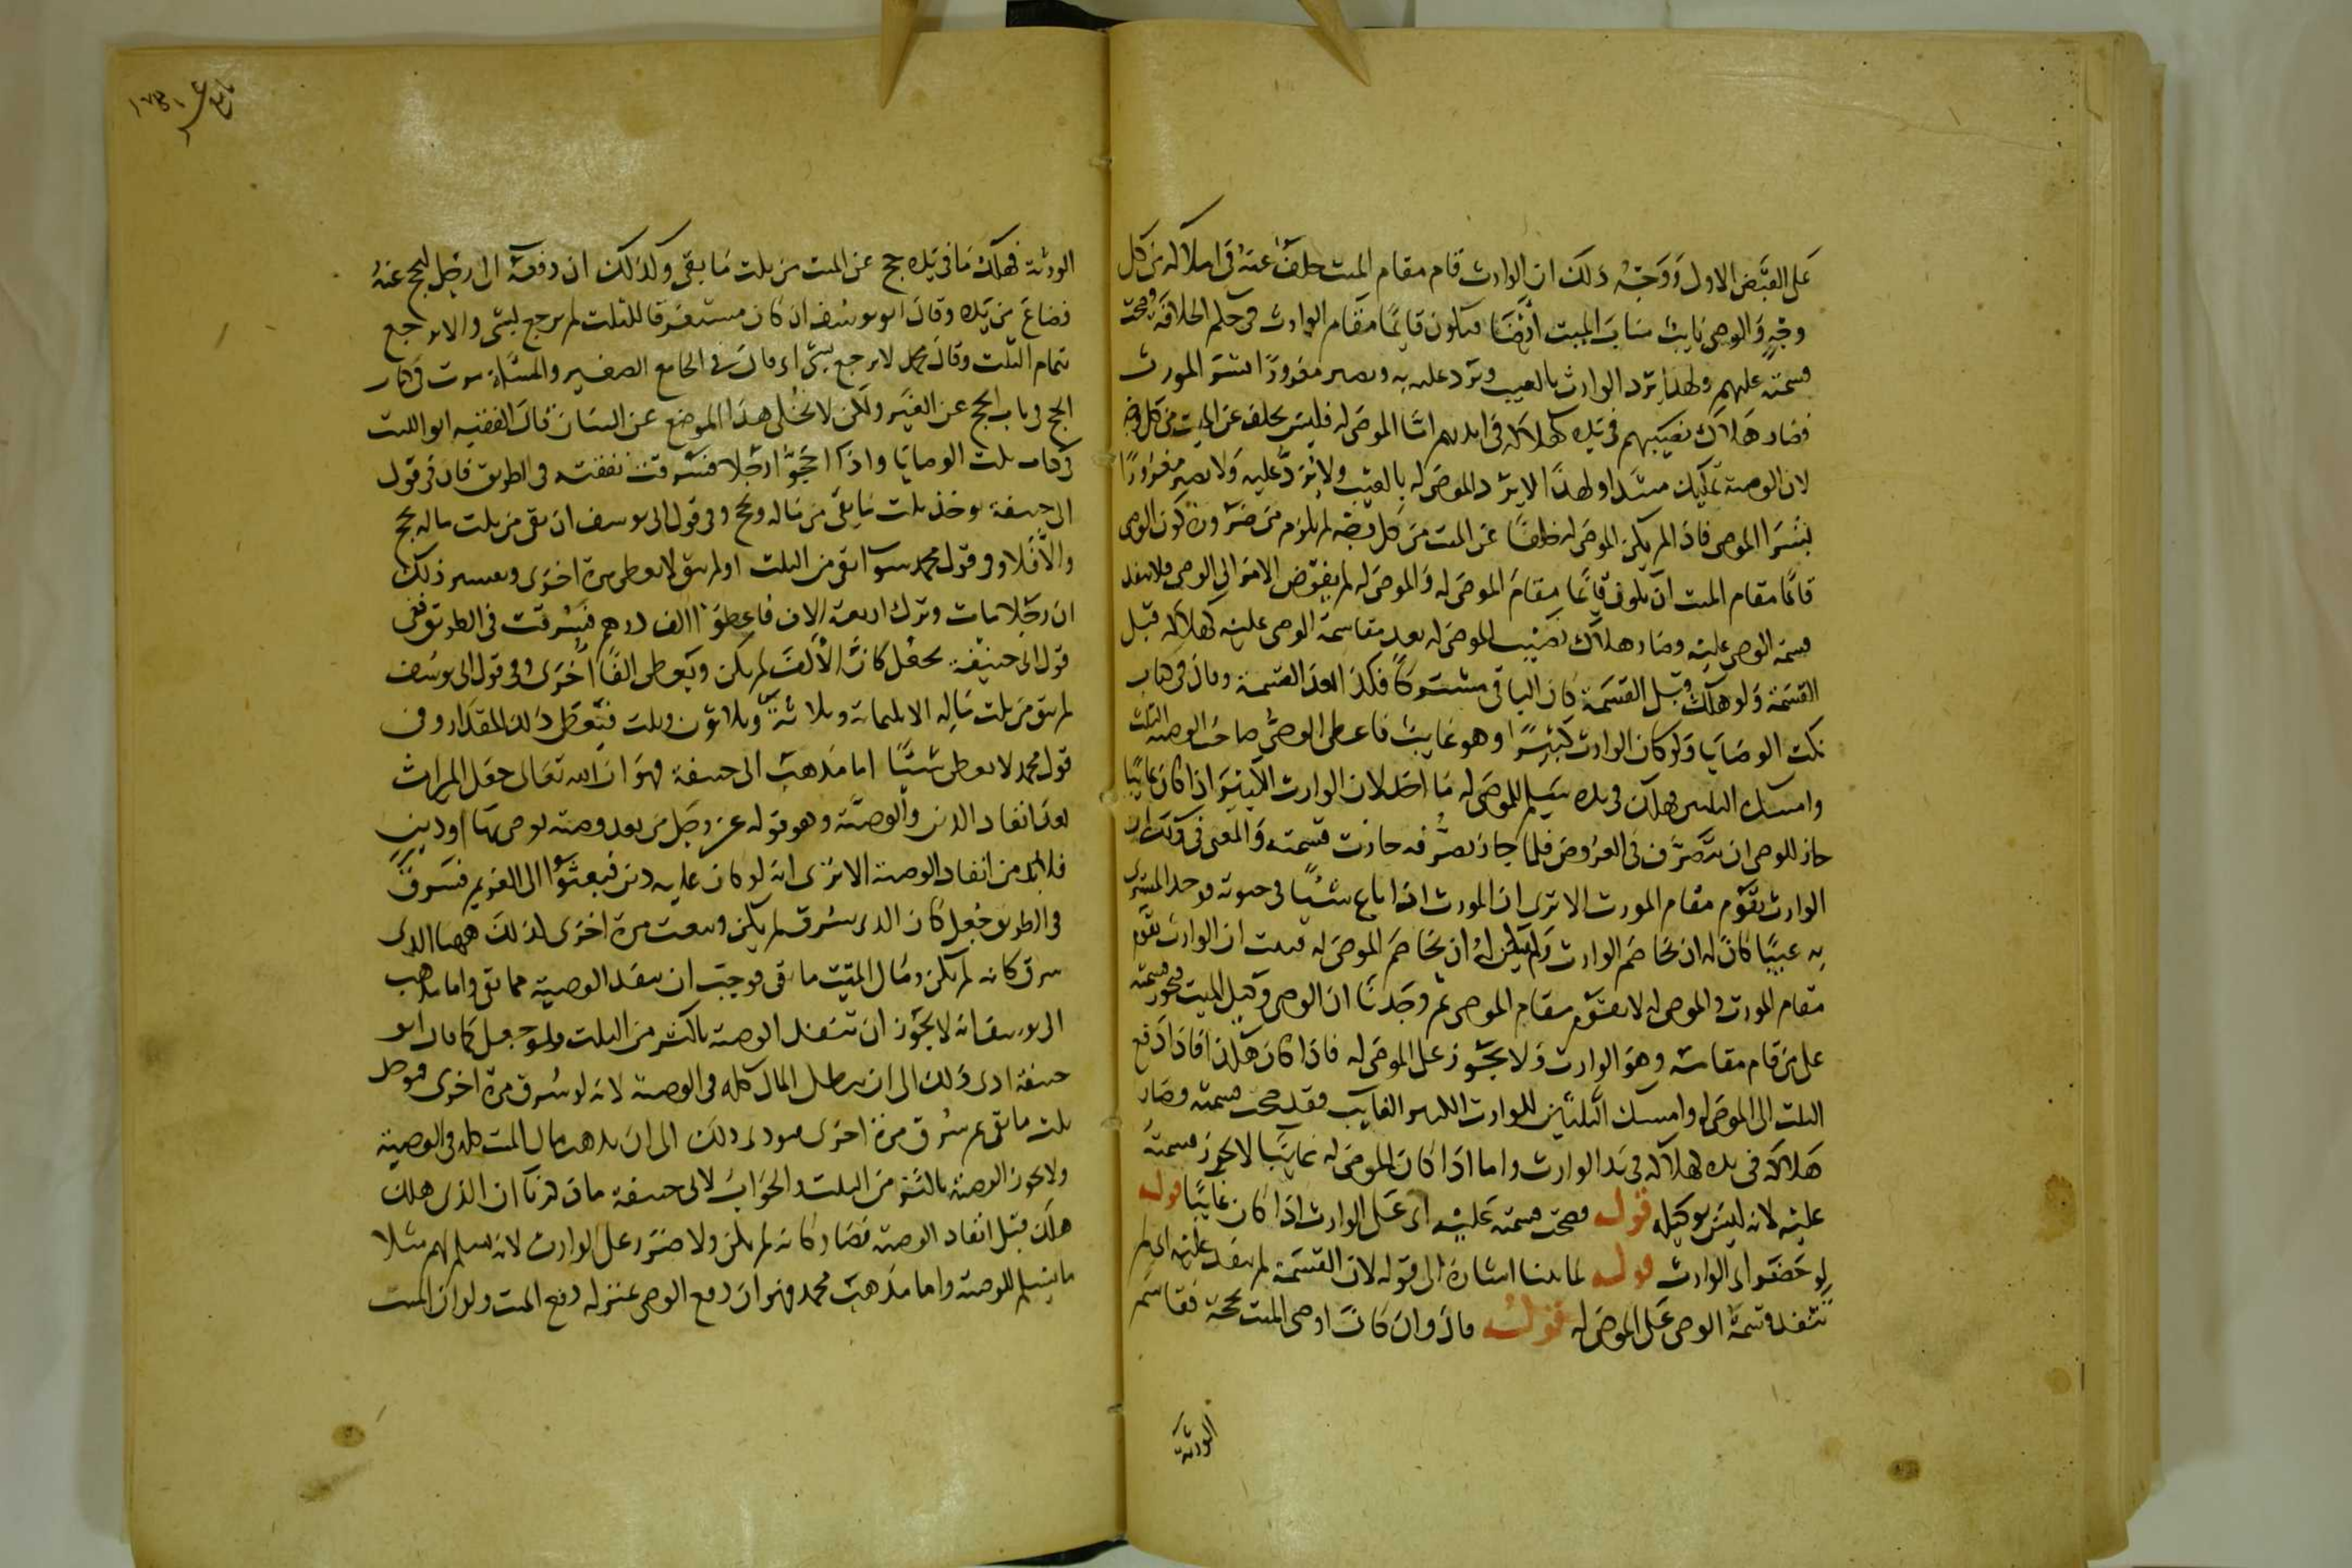 على القبض الاول ووجه ذلك ان الوارث قام مقام الميت خلف عنه في املاكه من كل
وجه والوصي نايب مناب الميت ايضا فيكون قايما مقام الوارث في حكم الخلافة وصحت
قسمته عليهم ولهذا يرد الوارث بالعيب ويرد عليه به ويصير مغرورا بشرى المورث
فصار هلاك نصيبهم في يده كهلاكه في ايديهم اما الموصى له فليس بخلف عن الميت من كل وجه
لان الوصية تمليك مبتدا ولهذا لا يرد الموصى له بالعيب ولا يرد عليه ولا يصير مغرورا
بشرا الموصي فاذا لم يكن الموصى له خلفا عن الميت من كل وجه لم يلزم من ضرورة كون الوصي
قائما مقام الميت ان يكون قائما مقام الموصى له والموصى له لم يفوض الامر الى الوصي فلا ينفذ
قسمة الوصي عليه وصار هلاك نصيب الموصى له بعد مقاسمة الوصي عليه كهلاكه قبل
القسمة ولو هلك قبل القسمة كان الباقي مشتركا فكذا بعد القسمة وقال في كتاب
نكت الوصايا ولو كان الوارث كبيرا وهو غايب فاعطى الوصي صاحب الوصية الثلث
وامسك الثلثين فهلك في يده يسلم للموصى له ما اخذ لان الوارث الكبير اذا كان غايبا
جاز للوصي ان يتصرف في العروض فلما جاز تصرفه جازت قسمته والمعنى في ذلك ان
الوارث يقوم مقام المورث الا ترى ان المورث اذا باع شيئا في حيوته فوجد المشتري
به عيبا كان له ان يخاصم الوارث ولم يكن له ان يخاصم الموصى له فثبت ان الوارث يقوم
مقام المورث والموصى له لا يقوم مقام الموصي ثم وجدنا ان الوصي وكيل الميت فتجوز قسمته
على من قام مقامه وهو الوارث ولا يجوز على الموصى له فاذا كان هكذا فاذا دفع
الثلث الى الموصى له وامسك الثلثين للوارث الكبير الغايب فقد صحت قسمته وصار
هلاكه في يده كهلاكه في يد الوارث واما اذا كان الموصى له غايبا لا يجوز قسمته
عليه لانه ليس بوكيله قوله فصحت قسمته عليه اي على الوارث اذا كان غايبا قوله
لو حضر اي الوارث قوله لما بينا اشارة الى قوله لان القسمة لم ينفذ عليه اي لم
تنفذ قسمة الوصي على الموصى له قوله قال وان كان اوصى الميت بحجة فقاسم
الورثة
الورثة فهلك ما في يده حج عن الميت من ثلث ما بقي وكذلك ان دفعه الى رجل ليحج عنه
فضاع من يده وقال ابو يوسف ان كان مستغرقا للثلث لم يرجع بشي والا يرجع
بتمام الثلث وقال محمد لا يرجع بشي اي قال في الجامع الصغير والمسئلة مرت في كتاب
الحج في باب الحج عن الغير ولكن لا نخلي هذا الموضع عن البيان قال الفقيه ابو الليث
في كتاب نكت الوصايا واذا احجوا رجلا فسرقت نفقته في الطريق قال في قول
ابي حنيفة يوخذ ثلث ما بقي من ماله ويحج وفي قول ابي يوسف ان بقي من ثلث ماله يحج
والا فلا وفي قول محمد سوا بقي من الثلث او لم يبق لا يعطى مرة اخرى وتفسير ذلك
ان رجلا مات وترك اربعة الاف فاعطوا الف درهم فسرقت في الطريق ففي
قول ابي حنيفة يجعل كان الالف لم يكن ويعطى الفا اخرى وفي قول ابي يوسف
لم يبق من ثلث ماله الا ثلثمائة وثلاثة وثلاثون وثلث فيعطى ذلك المقدار وفي
قول محمد لا يعطى شيئا اما مذهب ابي حنيفة فهو ان الله تعالى جعل الميراث
بعد انفاد الدين والوصية وهو قوله عز وجل من بعد وصية يوصى بها او دين
فلا بد من انفاد الوصية الا ترى انه لو كان عليه دين فبعثوا الى الغريم فسرق
في الطريق جعل كان الذي سرق لم يكن وبعث مرة اخرى لذلك ههنا الذي
سرق كانه لم يكن ومال الميت ما بقي فوجب ان ينفذ الوصية مما بقي واما مذهب
ابي يوسف انه لا يجوز ان تنفذ الوصية باكثر من الثلث ولو جعل كما قال ابو
حنيفة ادى ذلك الى ان يبطل المال كله في الوصية لانه لو سرق مرة اخرى فوصل
ثلث ما بقي ثم سرق مرة اخرى فيودي ذلك الى ان يذهب مال الميت كله في الوصية
ولا يجوز الوصية باكثر من الثلث والجواب لابي حنيفة ما ذكرنا ان الذي هلك
هلك قبل انفاد الوصية فصار كانه لم يكن ولا ضرر على الوارث لانه يسلم لهم مثلا
ما يسلم للوصية واما مذهب محمد فهو ان دفع الوصي بمنزلة دفع الميت ولو ان الميت